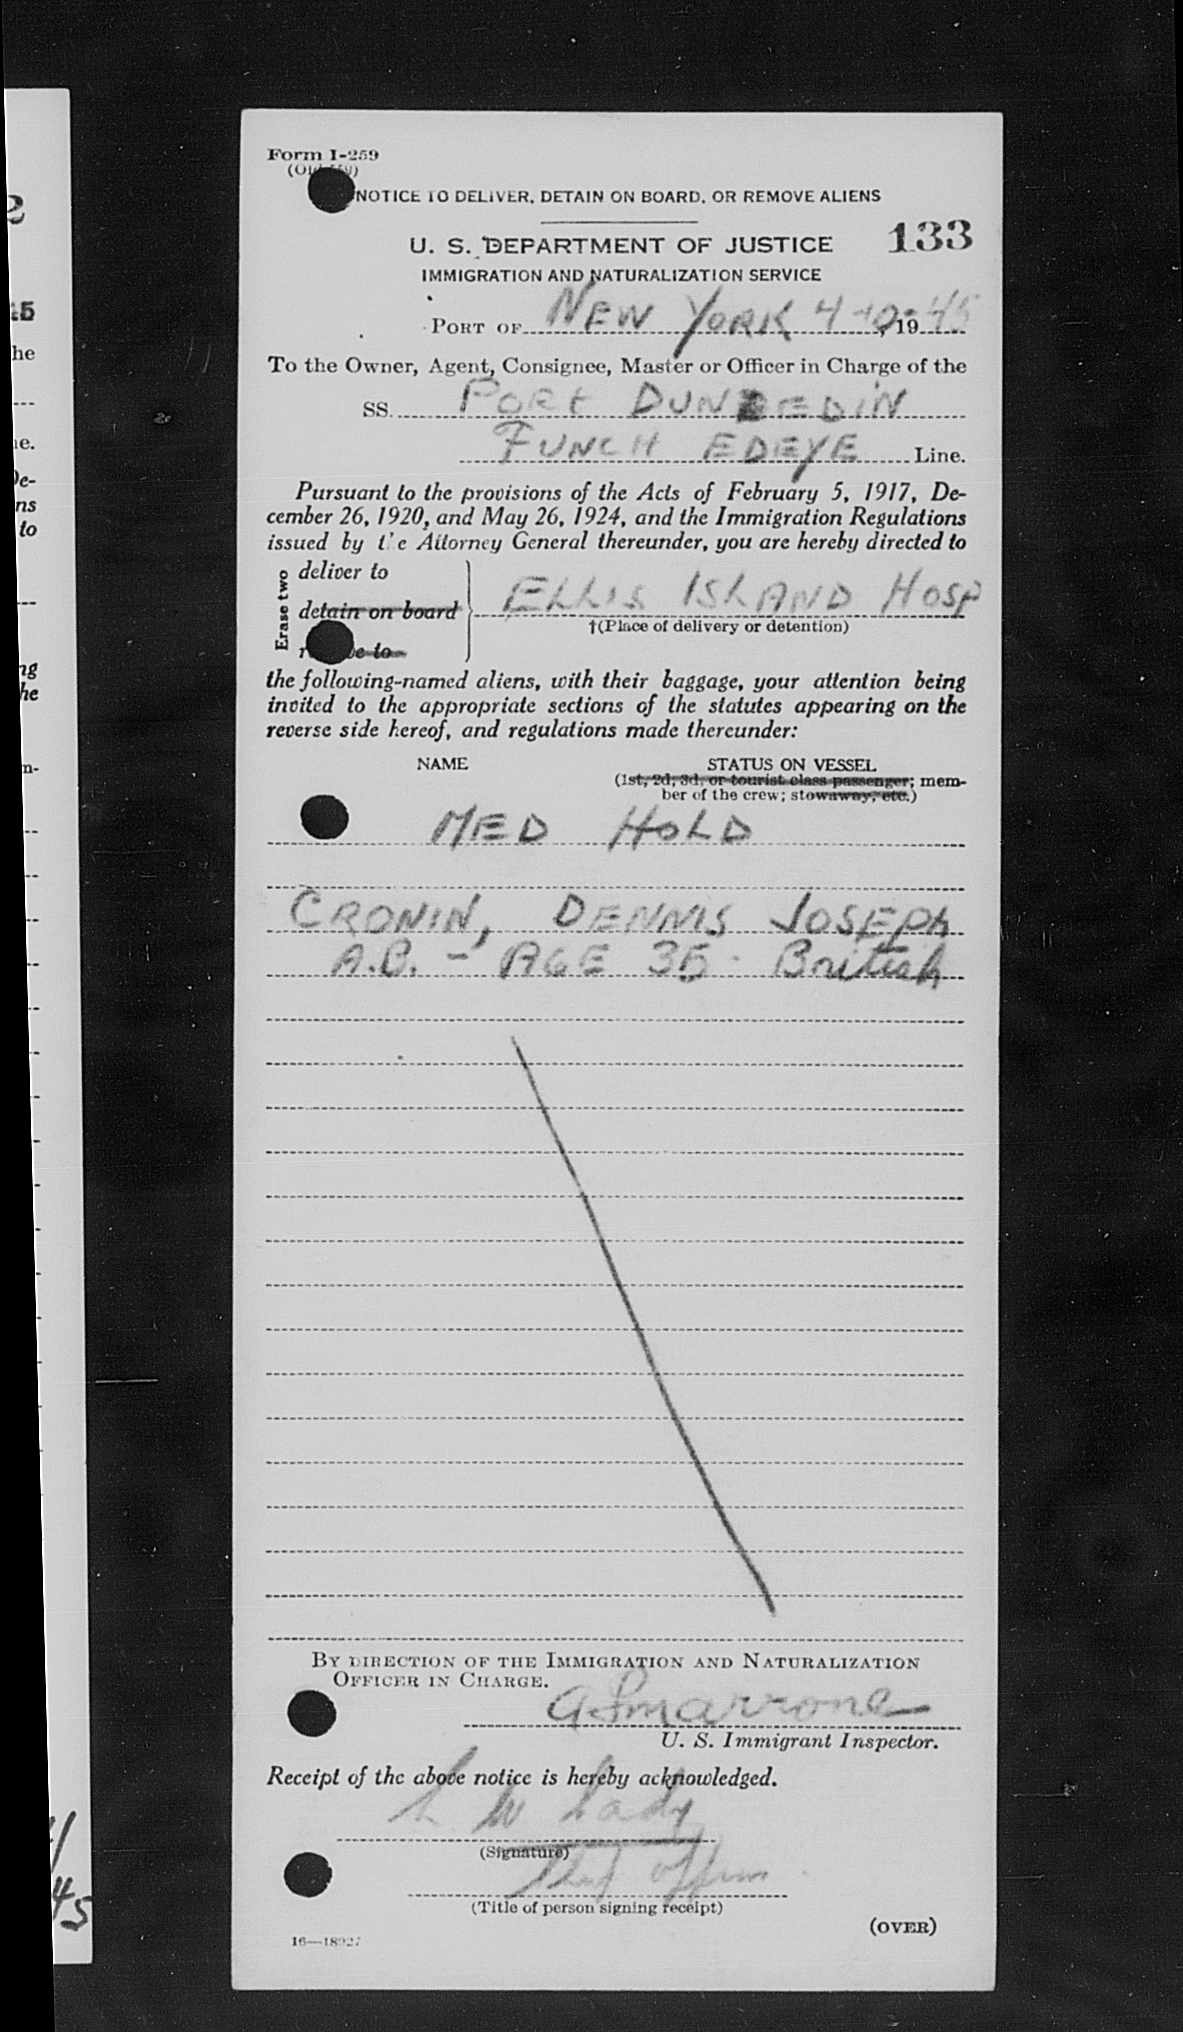 Form I-259
NOTICE TO DELIVER, DETAIN ON BOARD, OR REMOVE ALIENS
133
U. S. DEPARTMENT OF JUSTICE
IMMIGRATION AND NATURALIZATION SERVICE
PORT OF NEW YORK 4-10-, 1945
To the Owner, Agent, Consignee, Master or Officer in Charge of the
SS. PORT DUNEDIN
FUNCH EDEYE Line.
Pursuant to the provisions of the Acts of February 5, 1917, De-
cember 26, 1920, and May 26, 1924, and the Immigration Regulations
issued by the Attorney General thereunder, you are hereby directed to
Erase two
deliver to
detain on board ELLIS ISLAND HOSP
†(Place of delivery or detention)
to
the following-named aliens, with their baggage, your attention being
invited to the appropriate sections of the statutes appearing on the
reverse side hereof, and regulations made thereunder:
NAME STATUS ON VESSEL
(1st, 2d, 3d, or tourist class passenger; mem-
ber of the crew; stowaway, etc.)
MED HOLD
CRONIN, DENNIS JOSEPh
A.B. - AGE 35 - British
BY DIRECTION OF THE IMMIGRATION AND NATURALIZATION
OFFICER IN CHARGE.
U. S. Immigrant Inspector.
Receipt of the above notice is hereby acknowledged.
(Signature)
(Title of person signing receipt)
(OVER)
16—18927
2
45
he
ne.
De-
ns
to
ng
he
m-
45